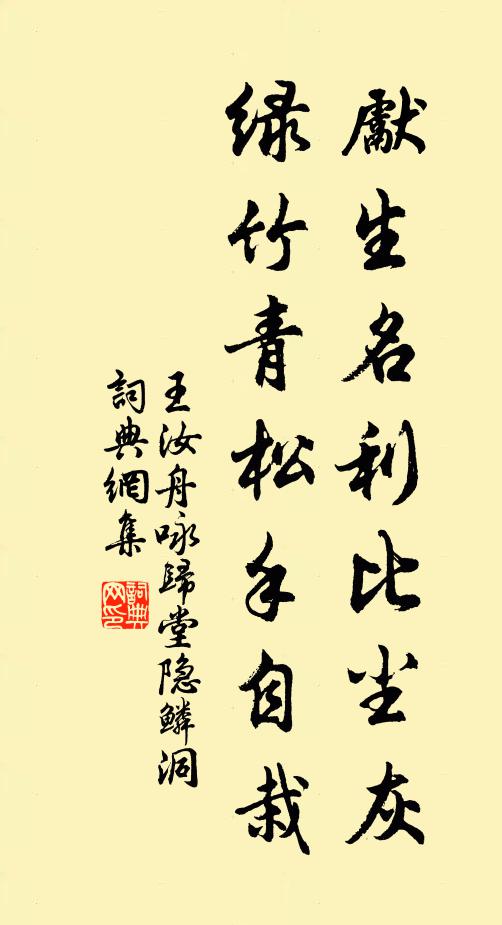 獻生名利比尘灰
绿竹青松手自栽
王汝舟咏歸堂隐鱗洞
詞典網集
詞典网印